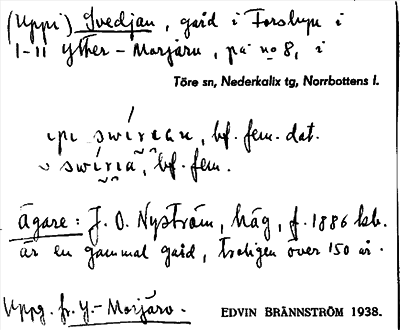 (Uppi) Svedjan, gård i Forsbyn i
1-11 Ytter-Morjärv, på no 8, i
Töre sn, Nederkalix tg, Norrbottens l.
ipi , bf. fem. dat.
bf. fem.
Ägare: J. O. Nyström, häg, f. 1886 lsb.
är en gammal gård, troligen över 150 år.
Uppg. fr. Y.-Morjärv.
EDVIN BRÄNNSTRÖM 1938.